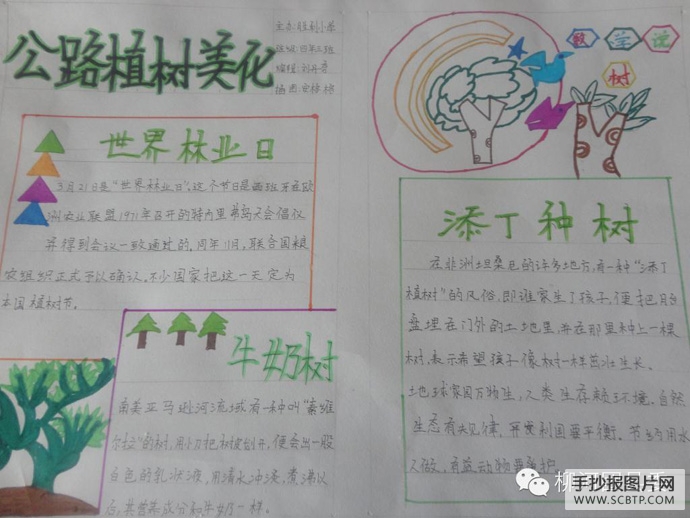 公路植树美化
主办:胜利小学
班级:四年三班
编辑:刘丹
插图:
世界林业日
3月21日是"世界林业日",这个节日是西班牙在欧
洲农业联盟1971年召开的特内里弗岛大会倡议
并得到会议一致通过的,同年11月,联合国粮
农组织正式予以确认,不少国家把这一天定为
本国植树节。
牛奶树
南美亚马逊河流域有一种叫"索维
尔拉"的树,用小刀把树皮划开,便会出一股
白色的乳状液,用清水冲淡,煮沸以
后,其营养成分和牛奶一样。
数学说
树
添丁种树
在非洲坦桑尼的许多地方,有一种"添丁
植树"的风俗,即谁家生了孩子,便把胎
盘埋在门外的土地里,并在那里种上一棵
树,表示希望孩子像树一样茁壮生长。
地球家园万物生,人类生存赖环境。自然
生态有规律,开发利用要平衡。节约用水
人人做,有益动物要保护。
手抄报图片网
WWW.SCBTP.COM